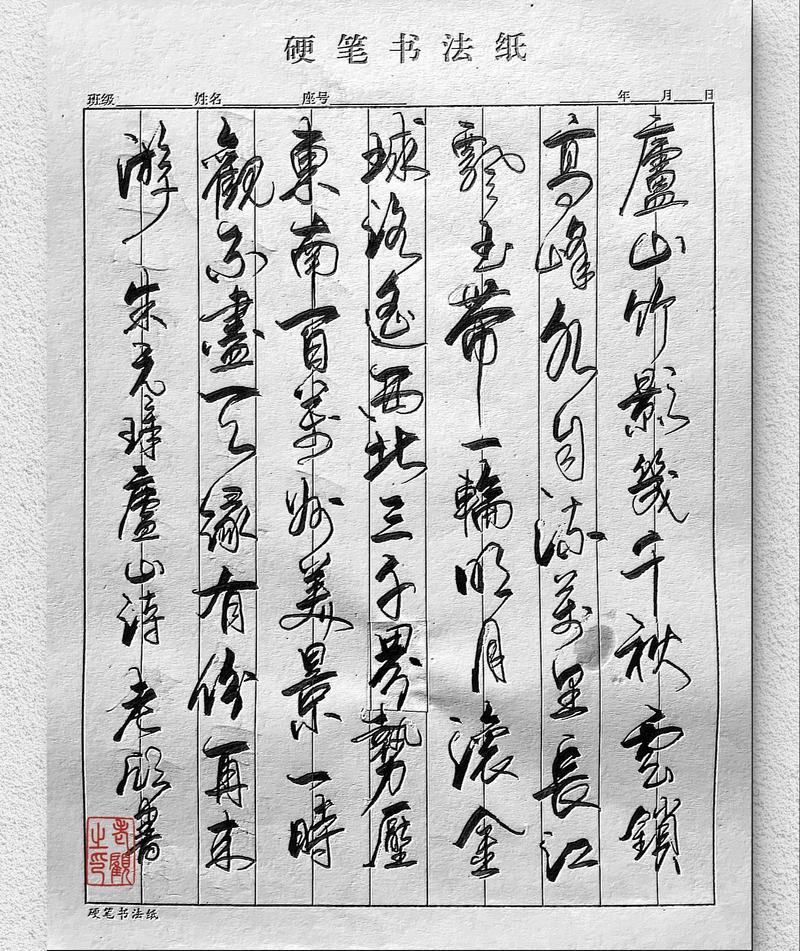 硬笔书法纸
班级 姓名 座号 年 月 日
廬山竹影幾千秋雲鎖
高峰水自流萬里長江
飄玉帶一輪明月滾金
球路遥西北三千界勢壓
東南百萬州美景一時
觀不盡天緣有份再来
游 朱元璋廬山詩 老顾書
老顧之印
硬笔书法纸